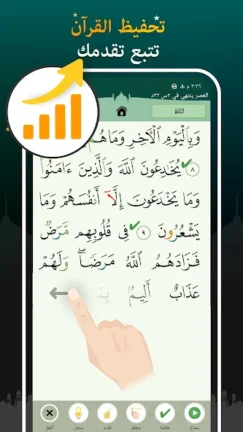 تحفيظ القرآن
تتبع تقدمك
٢:٢٦ م
العصر ينتهي في
وَبِالْيَوْمِ الْآخِرِ وَمَا هُم
٨ يُخَادِعُونَ اللَّهَ وَالَّذِينَ ءَامَنُوا
وَمَا يَخْدَعُونَ إِلَّآ أَنفُسَهُمْ وَمَا
يَشْعُرُونَ ٩ فِى قُلُوبِهِم مَّرَضٌ
فَزَادَهُمُ اللَّهُ مَرَضًا ۖ وَلَهُمْ
عَذَابٌ أَلِيمٌ بِمَا